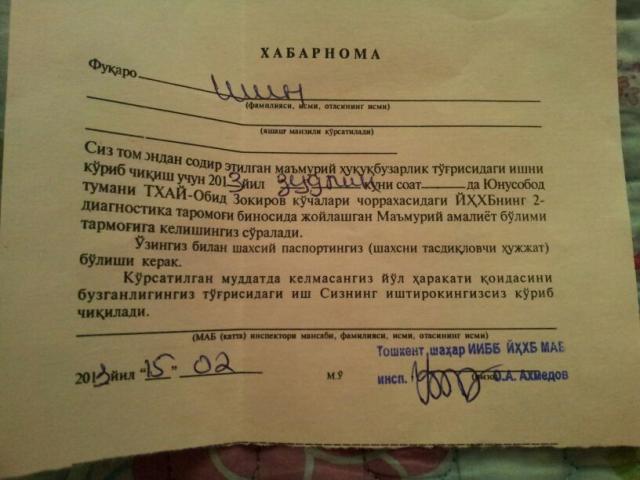 ХАБАРНОМА
Фуқаро шин
(фамилияси, исми, отасининг исми)
(яшаш манзили кўрсатилади)
Сиз томондан содир этилган маъмурий ҳуқуқбузарлик тўғрисидаги ишни
кўриб чиқиш учун 2013 йил зудлик куни соат да Юнусобод
тумани ТХАЙ-Обид Зокиров кўчалари чорраҳасидаги ЙҲХБнинг 2-
диагностика тармоғи биносида жойлашган Маъмурий амалиёт бўлими
тармоғига келишингиз сўралади.
Ўзингиз билан шахсий паспортингиз (шахсни тасдиқловчи ҳужжат)
бўлиши керак.
Кўрсатилган муддатда келмасангиз йўл ҳаракати қоидасини
бузганлигингиз тўғрисидаги иш Сизнинг иштирокингизсиз кўриб
чиқилади.
(МАБ (катта) инспектори мансаби, фамилияси, исми, отасининг исми)
2013 йил "15" 02 М.Ў
Тошкент шаҳар ИИББ ЙҲХБ МАБ
инсп. О.А. Ахмедов